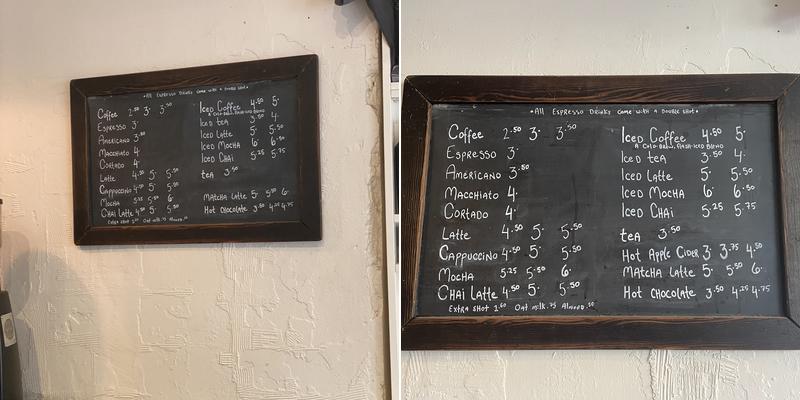 •All Espresso Drinks come with a double shot•
Coffee 2.50 3. 3.50
Espresso 3.
Americano 3.50
Macchiato 4.
Cortado 4.
Latte 4.50 5. 5.50
Cappuccino 4.50 5. 5.50
Mocha 5.25 5.50 6.
Chai Latte 4.50 5. 5.50
Extra shot 1.50 Oat milk .75 Almond .50
Iced Coffee 4.50 5.
A Cold-Brew, Flash-Iced Blend
Iced tea 3.50 4.
Iced Latte 5. 5.50
Iced Mocha 6. 6.50
Iced Chai 5.25 5.75
tea 3.50
Matcha Latte 5. 5.50 6.
Hot Chocolate 3.50 4.25 4.75
•All Espresso Drinks come with a double shot•
Coffee 2.50 3. 3.50
Espresso 3.
Americano 3.50
Macchiato 4.
Cortado 4.
Latte 4.50 5. 5.50
Cappuccino 4.50 5. 5.50
Mocha 5.25 5.50 6.
Chai Latte 4.50 5. 5.50
Extra shot 1.50 Oat milk .75 Almond .50
Iced Coffee 4.50 5.
A Cold-Brew, Flash-Iced Blend
Iced tea 3.50 4.
Iced Latte 5. 5.50
Iced Mocha 6. 6.50
Iced Chai 5.25 5.75
tea 3.50
Hot Apple Cider 3. 3.75 4.50
Matcha Latte 5. 5.50 6.
Hot Chocolate 3.50 4.25 4.75